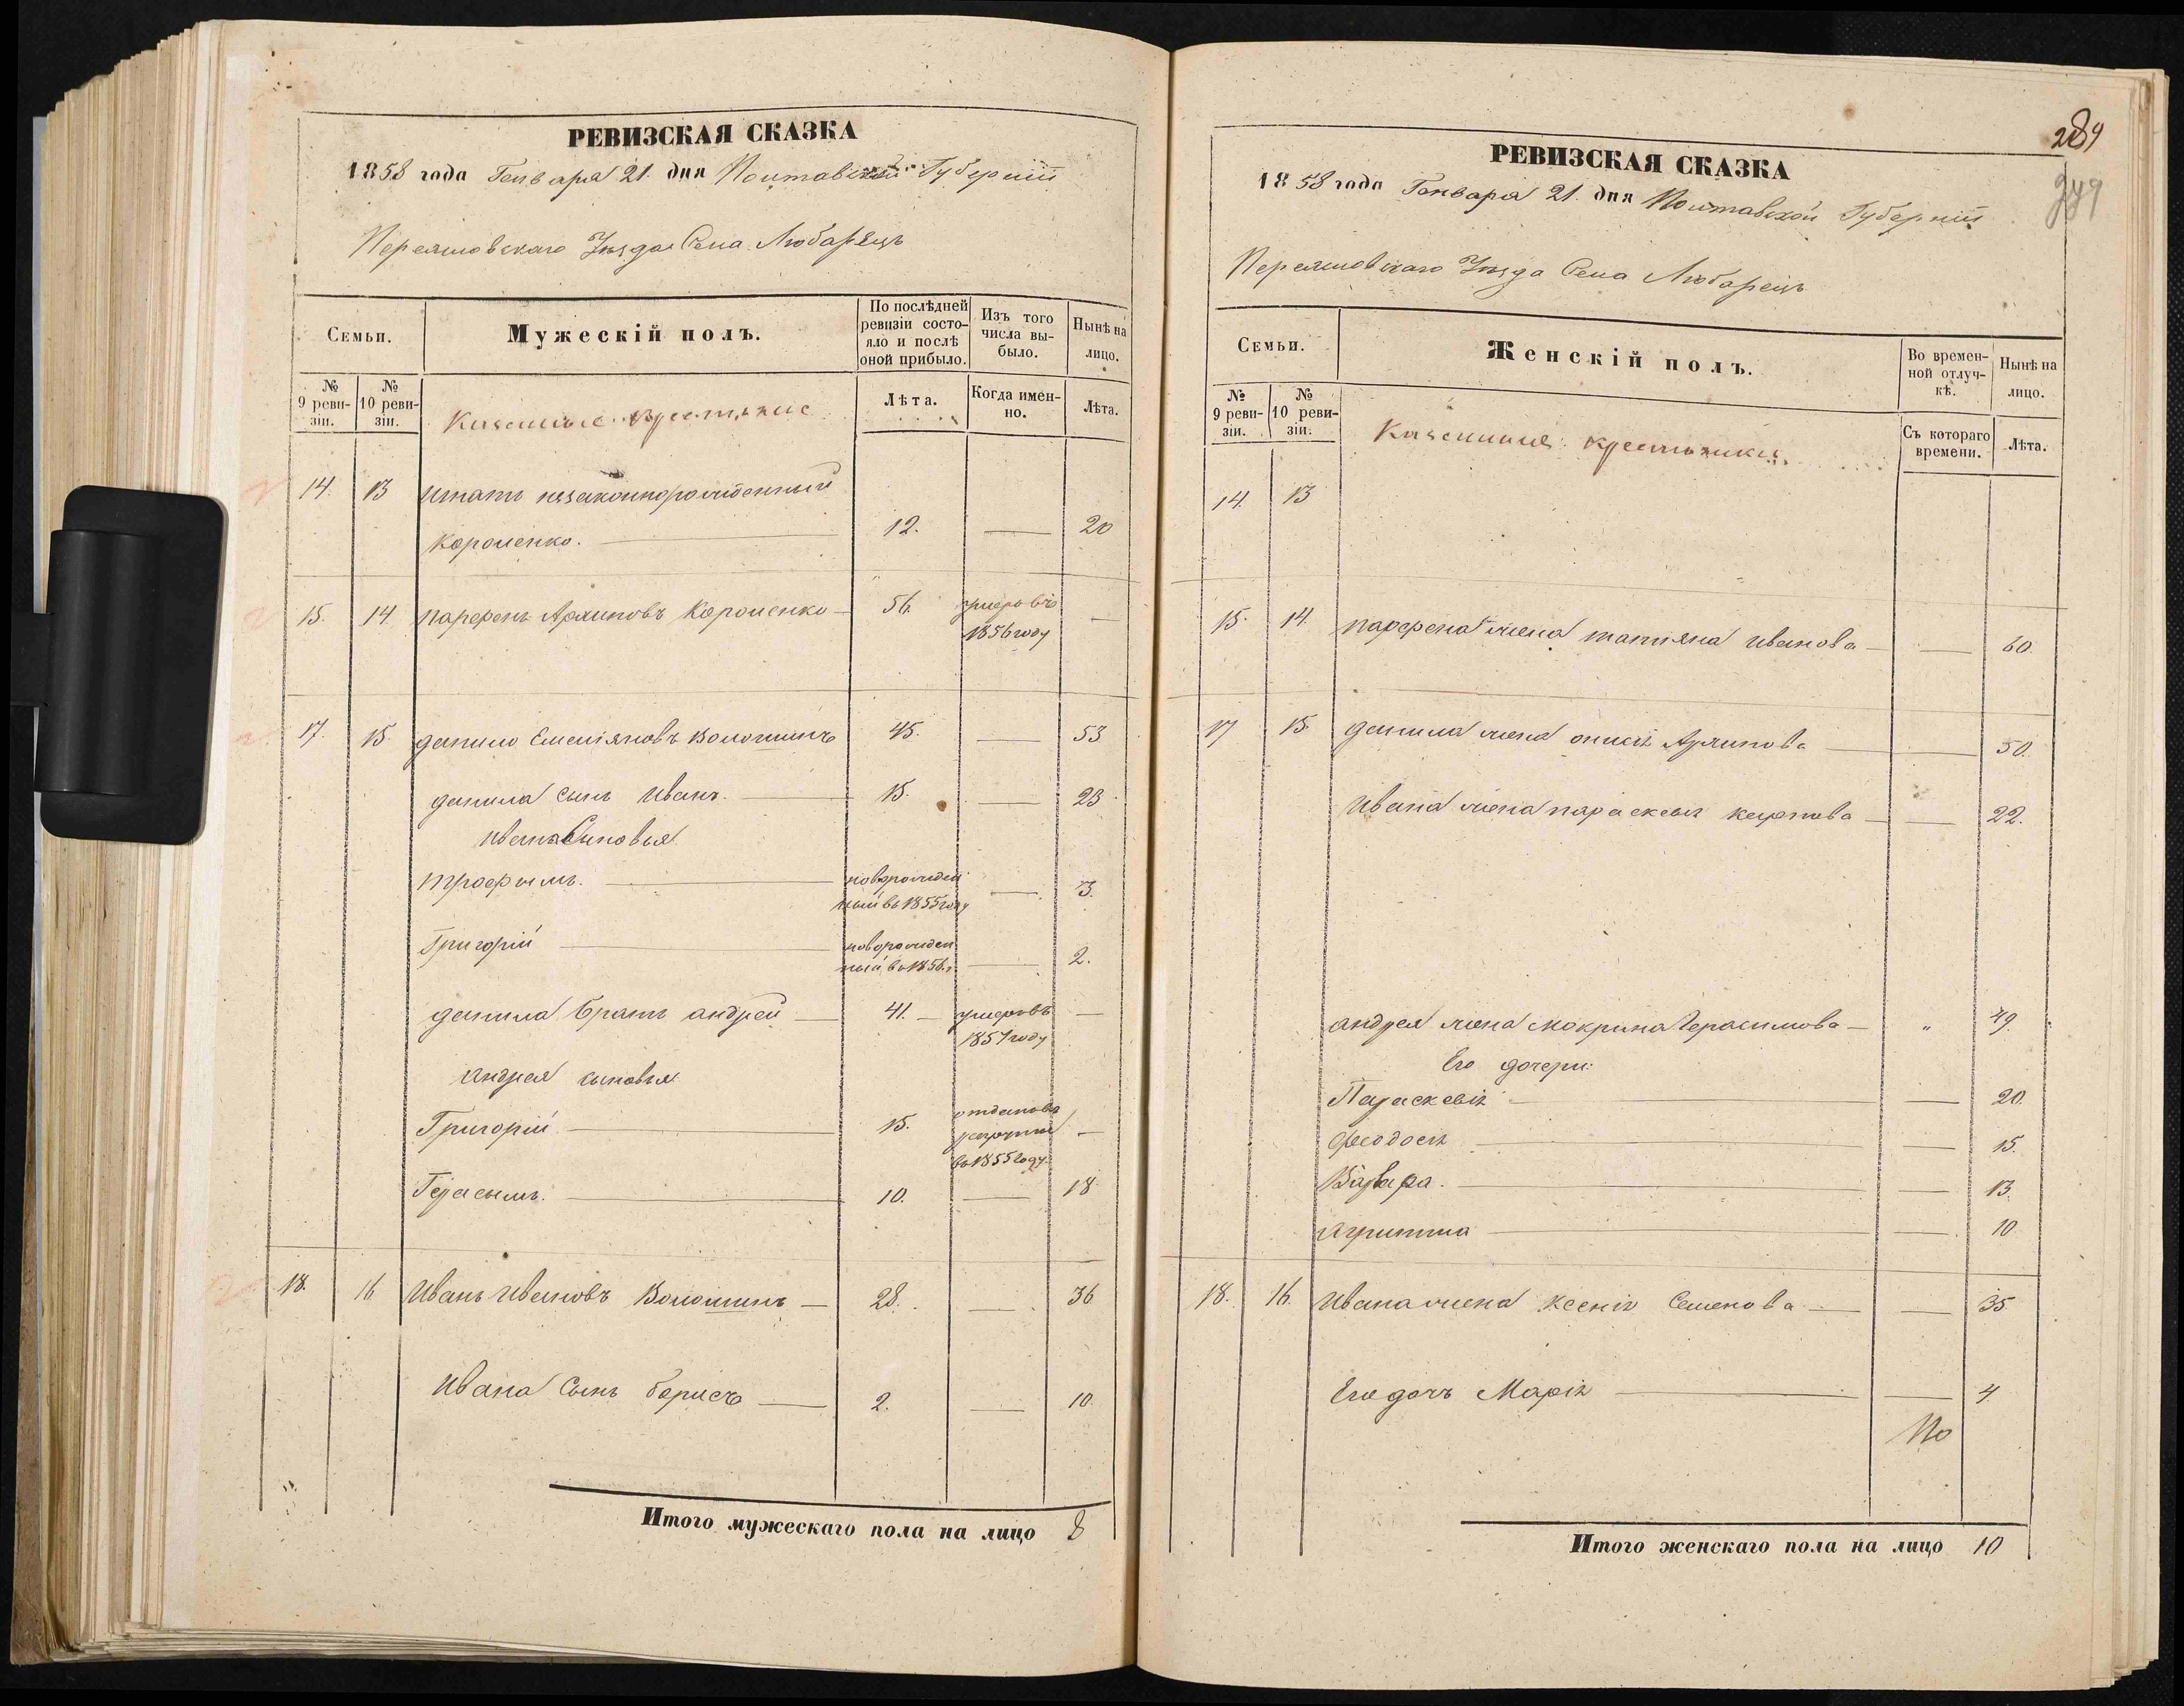 РЕВИЗСКАЯ СКАЗКА
1858 года Генваря 21. дня Полтавской Губерніи
Переяславскаго Уѣзда Села Любарецъ
Семьи.
Мужескій полъ.
По послѣдней ревизіи состояло и послѣ оной прибыло.
Изъ того числа выбыло.
Нынѣ на лицо.
№ 9 ревизіи.
№ 10 ревизіи.
Казенные крестьяне
Лѣта.
Когда именно.
Лѣта.
14. 13 Игнатъ незаконнорожденный
Короленко. 12. — 20
15. 14 парфенъ Архиповъ Короленко 56. умеръ въ —
1856 году
17. 15. данило Емеліяновъ Волошинъ 45. — 53
данила сынъ Иванъ. 15. — 23
ивана Сыновья
Трофымъ. новорожден
ный въ 1855 году — 3.
Григорій новорожден
ный въ 1856. г. — 2.
данила братъ андрей 41. умеръ въ —
1857 году
андрея сыновья
Григорій 15. отданъ въ
рекруты —
въ 1855 году.
Герасымъ. 10. — 18
18. 16. Иванъ Ивановъ Волошинъ — 28. — 36
Ивана Сынъ борисъ — 2. — 10.
Итого мужескаго пола на лицо 8
284
РЕВИЗСКАЯ СКАЗКА
1858 года Генваря 21. дня Полтавской Губерніи
Переяславскаго Уѣзда Села Любарецъ
Семьи.
Женскій полъ.
Во временной отлучкѣ.
Нынѣ на лицо.
№ 9 ревизіи.
№ 10 ревизіи.
Казенныя крестьянки.
Съ котораго времени.
Лѣта.
14. 13
15. 14. парфена жена татіяна иванова — — 60.
17 15. данила жена Архипова — 50.
Ивана жена параскевія карпова — — 22.
андрея жена Мокрина Герасимова — „ 49.
Его дочери:
Параскевія — 20.
Феодосія — 15.
Варвара. — 13.
Агрипина — 10
18. 16. Ивана жена Ксенія Семенова — — 35
Его дочъ Марія — 4
По
Итого женскаго пола на лицо 10